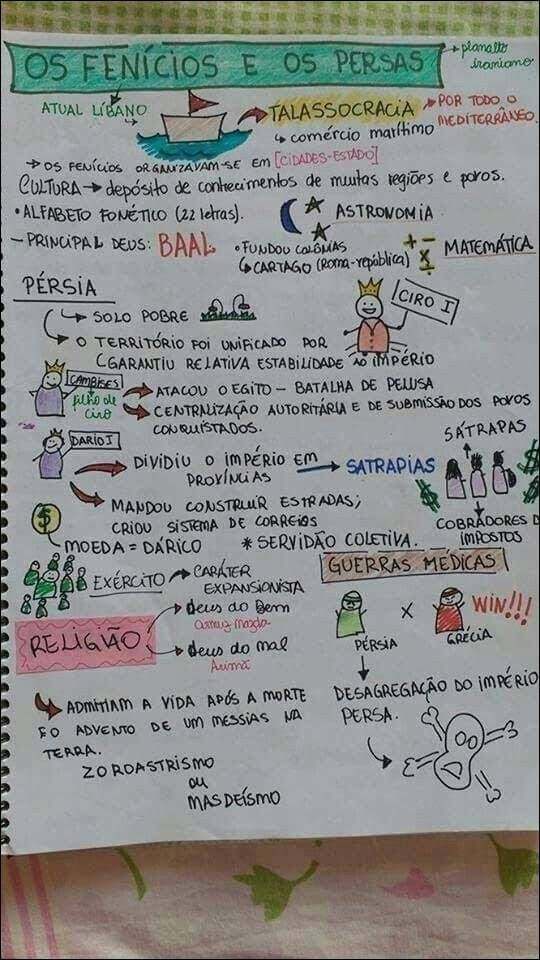 OS FENÍCIOS E OS PERSAS → planalto iraniano
ATUAL LÍBANO
TALASSOCRACIA → POR TODO O MEDITERRÂNEO.
↳ comércio marítimo
→ OS FENÍCIOS ORGANIZAVAM-SE EM [CIDADES-ESTADO]
CULTURA → depósito de conhecimentos de muitas regiões e povos.
• ALFABETO FONÉTICO (22 letras).
ASTRONOMIA
- PRINCIPAL DEUS: BAAL
• FUNDOU COLÔNIAS
↳ CARTAGO (Roma-república)
+ - x ÷
MATEMÁTICA
PÉRSIA
→ SOLO POBRE
CIRO I
→ O TERRITÓRIO FOI UNIFICADO POR
GARANTIU RELATIVA ESTABILIDADE AO IMPÉRIO
CAMBISES
filho de ciro
ATACOU O EGITO - BATALHA DE PELUSA
CENTRALIZAÇÃO AUTORITÁRIA E DE SUBMISSÃO DOS POVOS
CONQUISTADOS.
DARIO I
DIVIDIU O IMPÉRIO EM → SATRAPIAS
PROVÍNCIAS
SÁTRAPAS
$ $ $
COBRADORES DE
IMPOSTOS
MANDOU CONSTRUIR ESTRADAS;
CRIOU SISTEMA DE CORREIOS
$
MOEDA = DÁRICO
* SERVIDÃO COLETIVA.
EXÉRCITO → CARÁTER
EXPANSIONISTA
GUERRAS MÉDICAS
PÉRSIA X GRÉCIA
WIN!!!
RELIGIÃO
deus do Bem
deus do mal
DESAGREGAÇÃO DO IMPÉRIO
PERSA.
ADMITIAM A VIDA APÓS A MORTE
E O ADVENTO DE UM MESSIAS NA
TERRA.
ZOROASTRISMO
ou
MASDEÍSMO